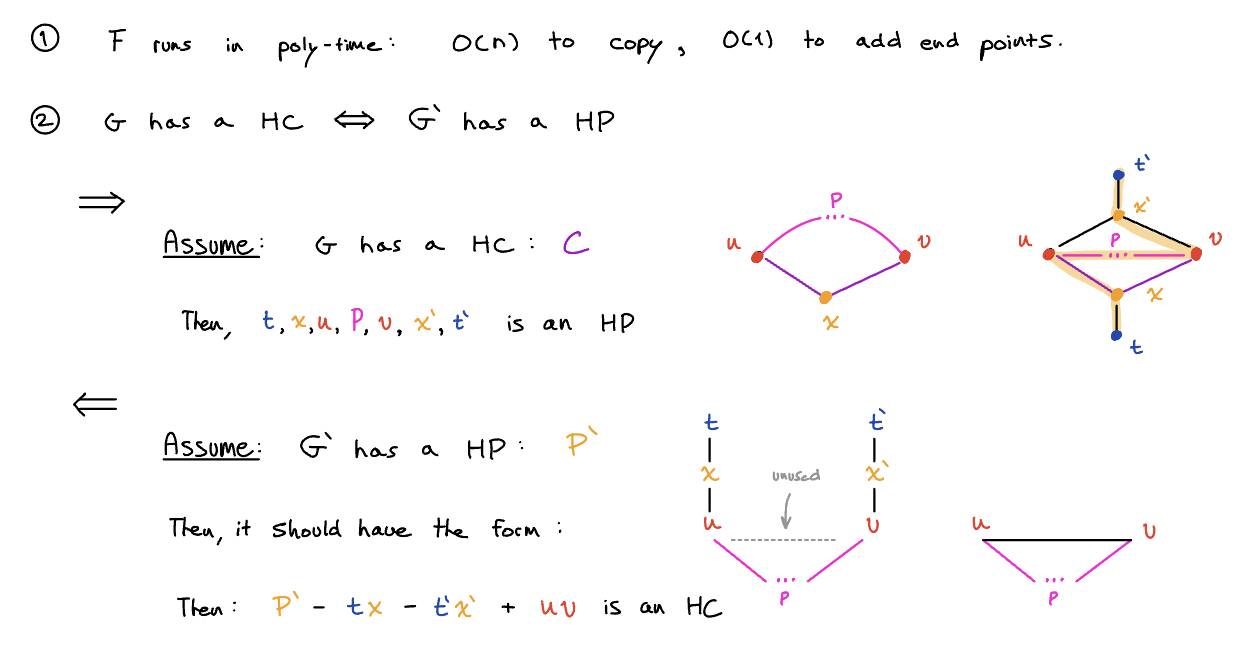 ① F runs in poly-time: O(n) to copy, O(1) to add end points.
② G has a HC ⟺ G` has a HP
⟹
Assume: G has a HC: C
Then, t, x, u, P, v, x`, t` is an HP
P
u
v
x
t`
x`
u
P
v
x
t
⟸
Assume: G` has a HP: P`
Then, it should have the form:
Then: P` - tx - t`x` + uv is an HC
t
t`
x
unused
x`
u
v
...
P
u
v
...
P